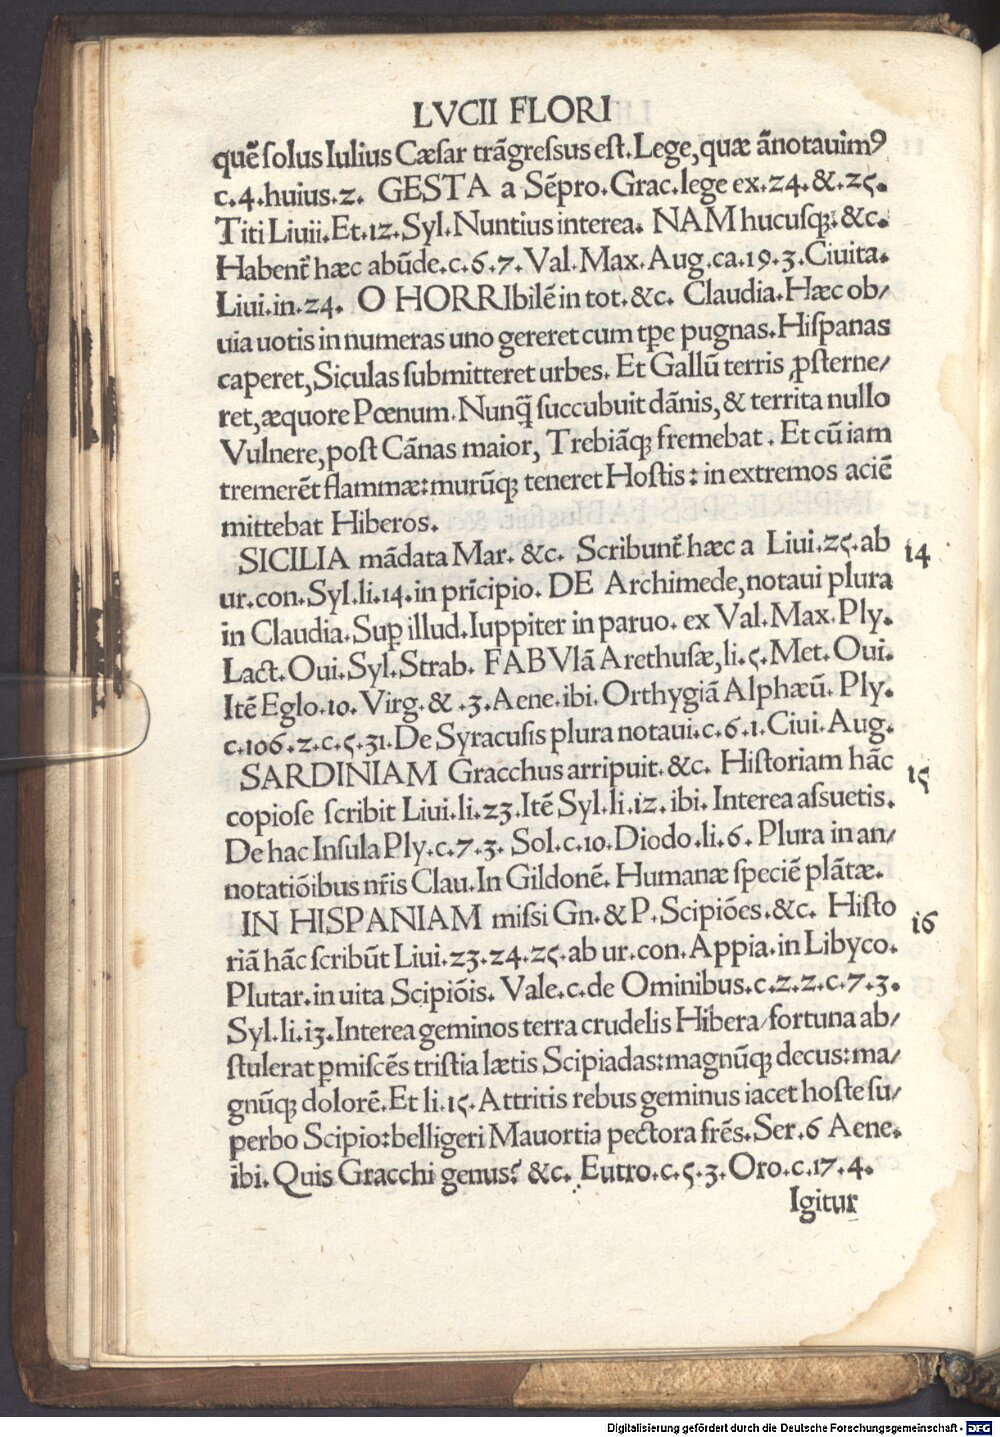 LVCII FLORI
quē ſolus Iulius Cæſar trāgreſsus eſt.Lege,quæ ānotauimꝰ
c.4.huius.2. GESTA a Sēpro.Grac.lege ex.24.&.25.
Titi Liuii.Et.12.Syl.Nuntius interea. NAM hucuſqꝫ.&c.
Habent᷑ hæc abūde.c.6.7.Val.Max.Aug.ca.19.3.Ciuita.
Liui.in.24. O HORRIbilē in tot.&c. Claudia.Hæc ob/
uia uotis in numeras uno gereret cum tp̄e pugnas.Hiſpanas
caperet,Siculas ſubmitteret urbes. Et Gallū terris ꝓſterne/
ret,æquore Pœnum.Nunq̄ ſuccubuit dānis,& territa nullo
Vulnere,poſt Cānas maior, Trebiāqꝫ fremebat. Et cū iam
tremerēt flammæ:murūqꝫ teneret Hoſtis: in extremos aciē
mittebat Hiberos.
SICILIA mādata Mar. &c. Scribunt᷑ hæc a Liui.25.ab 14
ur.con.Syl.li.14.in prīcipio. DE Archimede,notaui plura
in Claudia.Sup̱ illud.Iuppiter in paruo. ex Val.Max.Ply.
Lact.Oui.Syl.Strab. FABVlā Arethuſæ,li.5.Met.Oui.
Itē Eglo.10.Virg.&.3.Aene.ibi.Orthygiā Alphæū.Ply.
c.106.2.c.5.31.De Syracuſis plura notaui.c.6.1.Ciui.Aug.
SARDINIAM Gracchus arripuit.&c. Hiſtoriam hāc 15
copioſe ſcribit Liui.li.23.Itē Syl.li.12.ibi.Interea aſsuetis.
De hac Inſula Ply.c.7.3. Sol.c.10.Diodo.li.6. Plura in an/
notatiōibus nr̄is Clau.In Gildonē. Humanæ ſpeciē plātæ.
IN HISPANIAM miſsi Gn.&P.Scipiōes.&c. Hiſto 16
riā hāc ſcribūt Liui.23.24.25.ab ur.con.Appia.in Libyco.
Plutar.in uita Scipiōis. Vale.c.de Ominibus.c.2.2.c.7.3.
Syl.li.13.Interea geminos terra crudelis Hibera/fortuna ab/
ſtulerat p̱miſcēs triſtia lætis Scipiadas:magnūqꝫ decus:ma/
gnūqꝫ dolorē.Et li.15.Attritis rebus geminus iacet hoſte ſu/
perbo Scipio:belligeri Mauortia pectora frēs.Ser.6 Aene.
ibi.Quis Gracchi genus? &c. Eutro.c.5.3.Oro.c.17.4.
Igitur
Digitalisierung gefördert durch die Deutsche Forschungsgemeinschaft - DFG